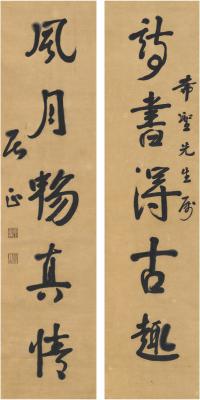 詩書得古趣
希聖先生屬
風月暢真情
居正